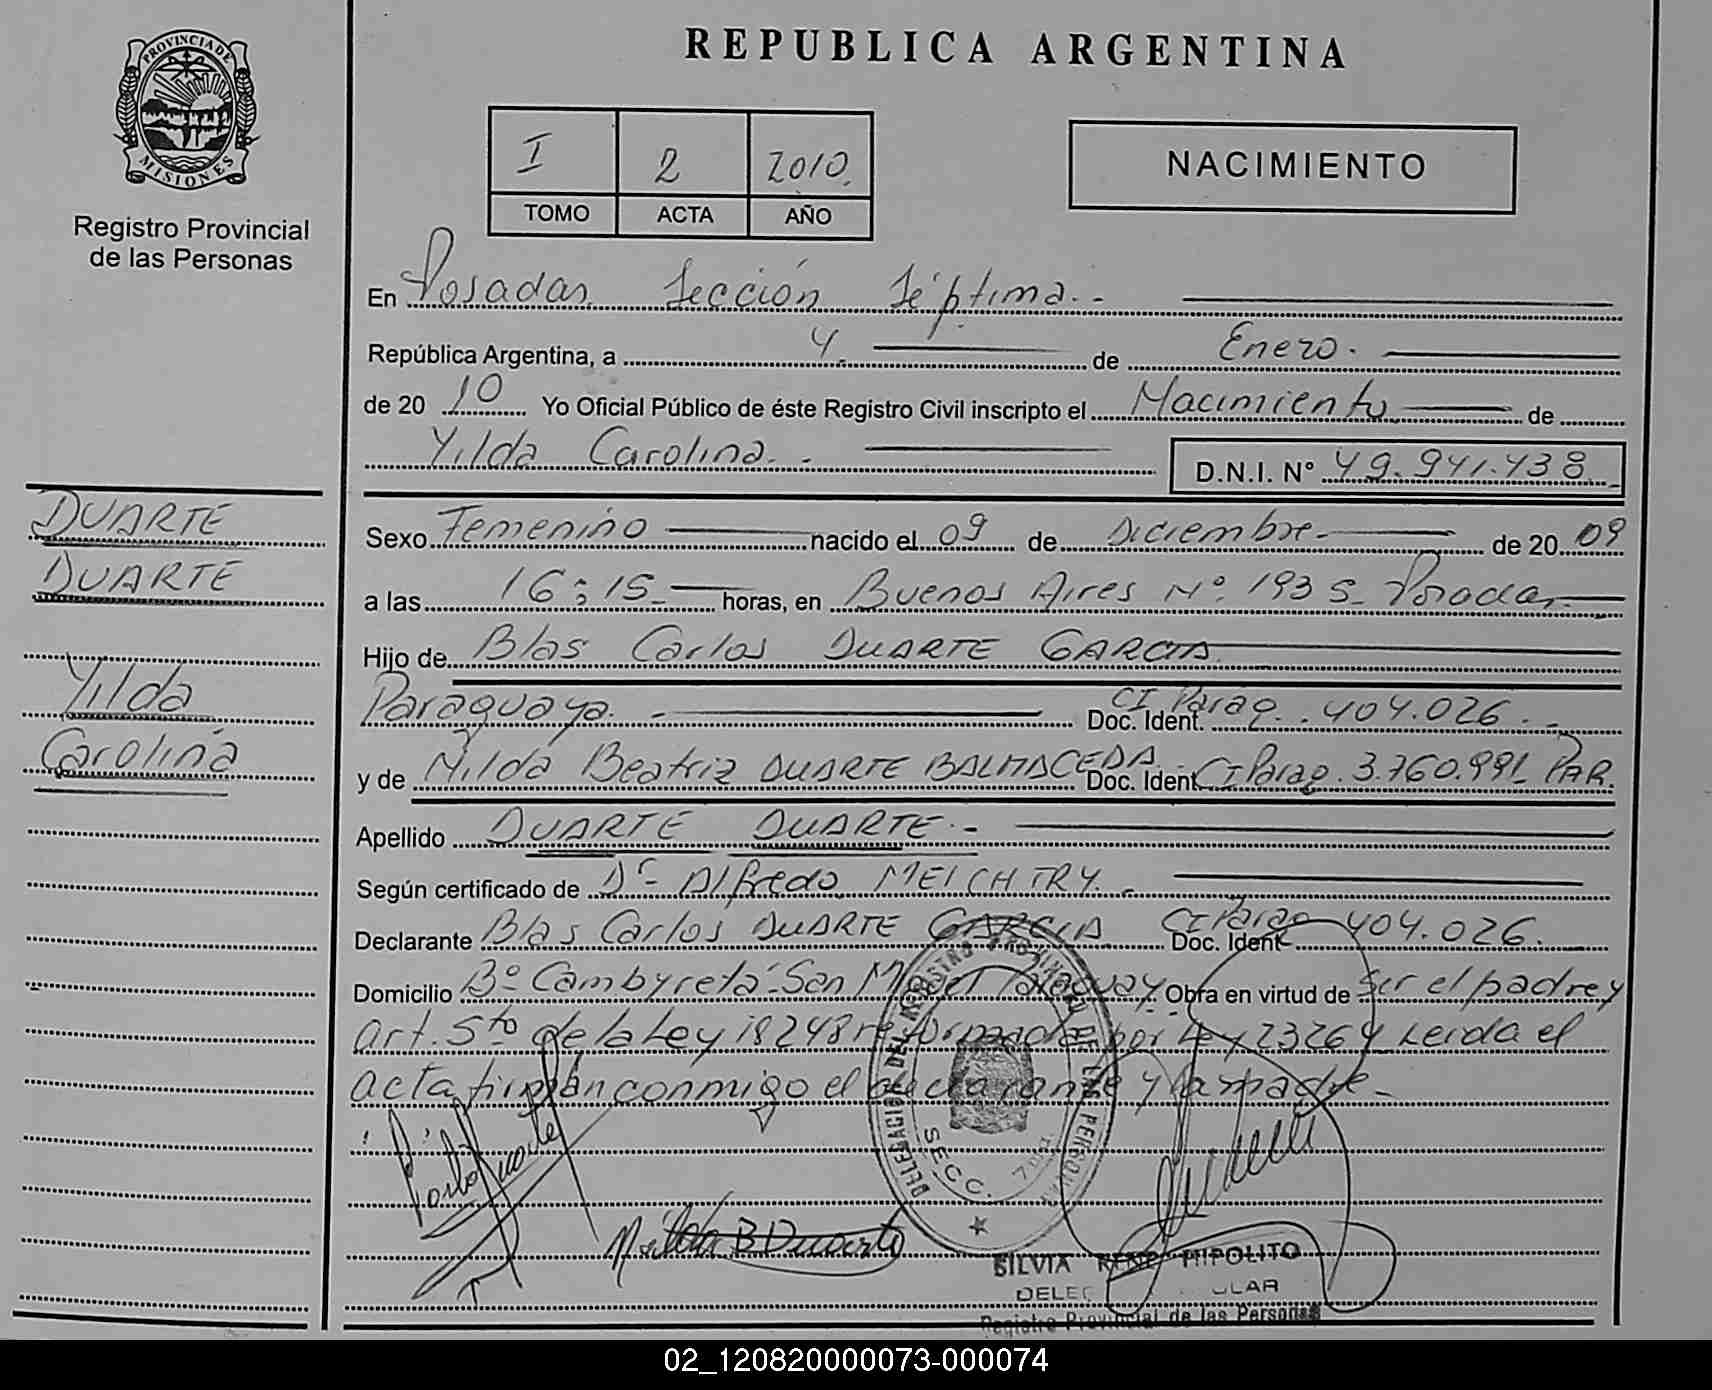 PROVINCIA DE
MISIONES
Registro Provincial
de las Personas
REPUBLICA ARGENTINA
I 2 2010.
TOMO ACTA AÑO
NACIMIENTO
En Posadas Sección Séptima.-
República Argentina, a 4 de Enero.
de 20 10 Yo Oficial Público de éste Registro Civil inscripto el Nacimiento de
Yilda Carolina.- D.N.I. N° 49.941.438
DUARTE
DUARTE
Yilda
Carolina
Sexo Femenino nacido el 09 de Diciembre de 20 09
a las 16:15 horas, en Buenos Aires N° 1935 Posadas
Hijo de Blas Carlos DUARTE GARCIA
Paraguaya.- Doc. Ident. CI Parag. 404.026.-
y de Nilda Beatriz DUARTE BALMACEDA Doc. Ident CI Parag. 3.760.991 PAR.
Apellido DUARTE DUARTE.-
Según certificado de Dr Alfredo MEICHTRY.-
Declarante Blas Carlos DUARTE GARCIA Doc. Ident CI Parag 404.026.
Domicilio B° Cambyretá-San Miguel Paraguay. Obra en virtud de ser el padre y
art. 5to de la Ley 18248 reformada por Ley 23264 Leida el
acta firman conmigo el declarante y la madre-
Carlos Duarte
Nilda B Duarte
DELEGACION DEL REGISTRO PROVINCIAL DE LAS PERSONAS
SECC. 7
SILVIA RENE HIPOLITO
Registro Provincial de las Personas
02_120820000073-000074